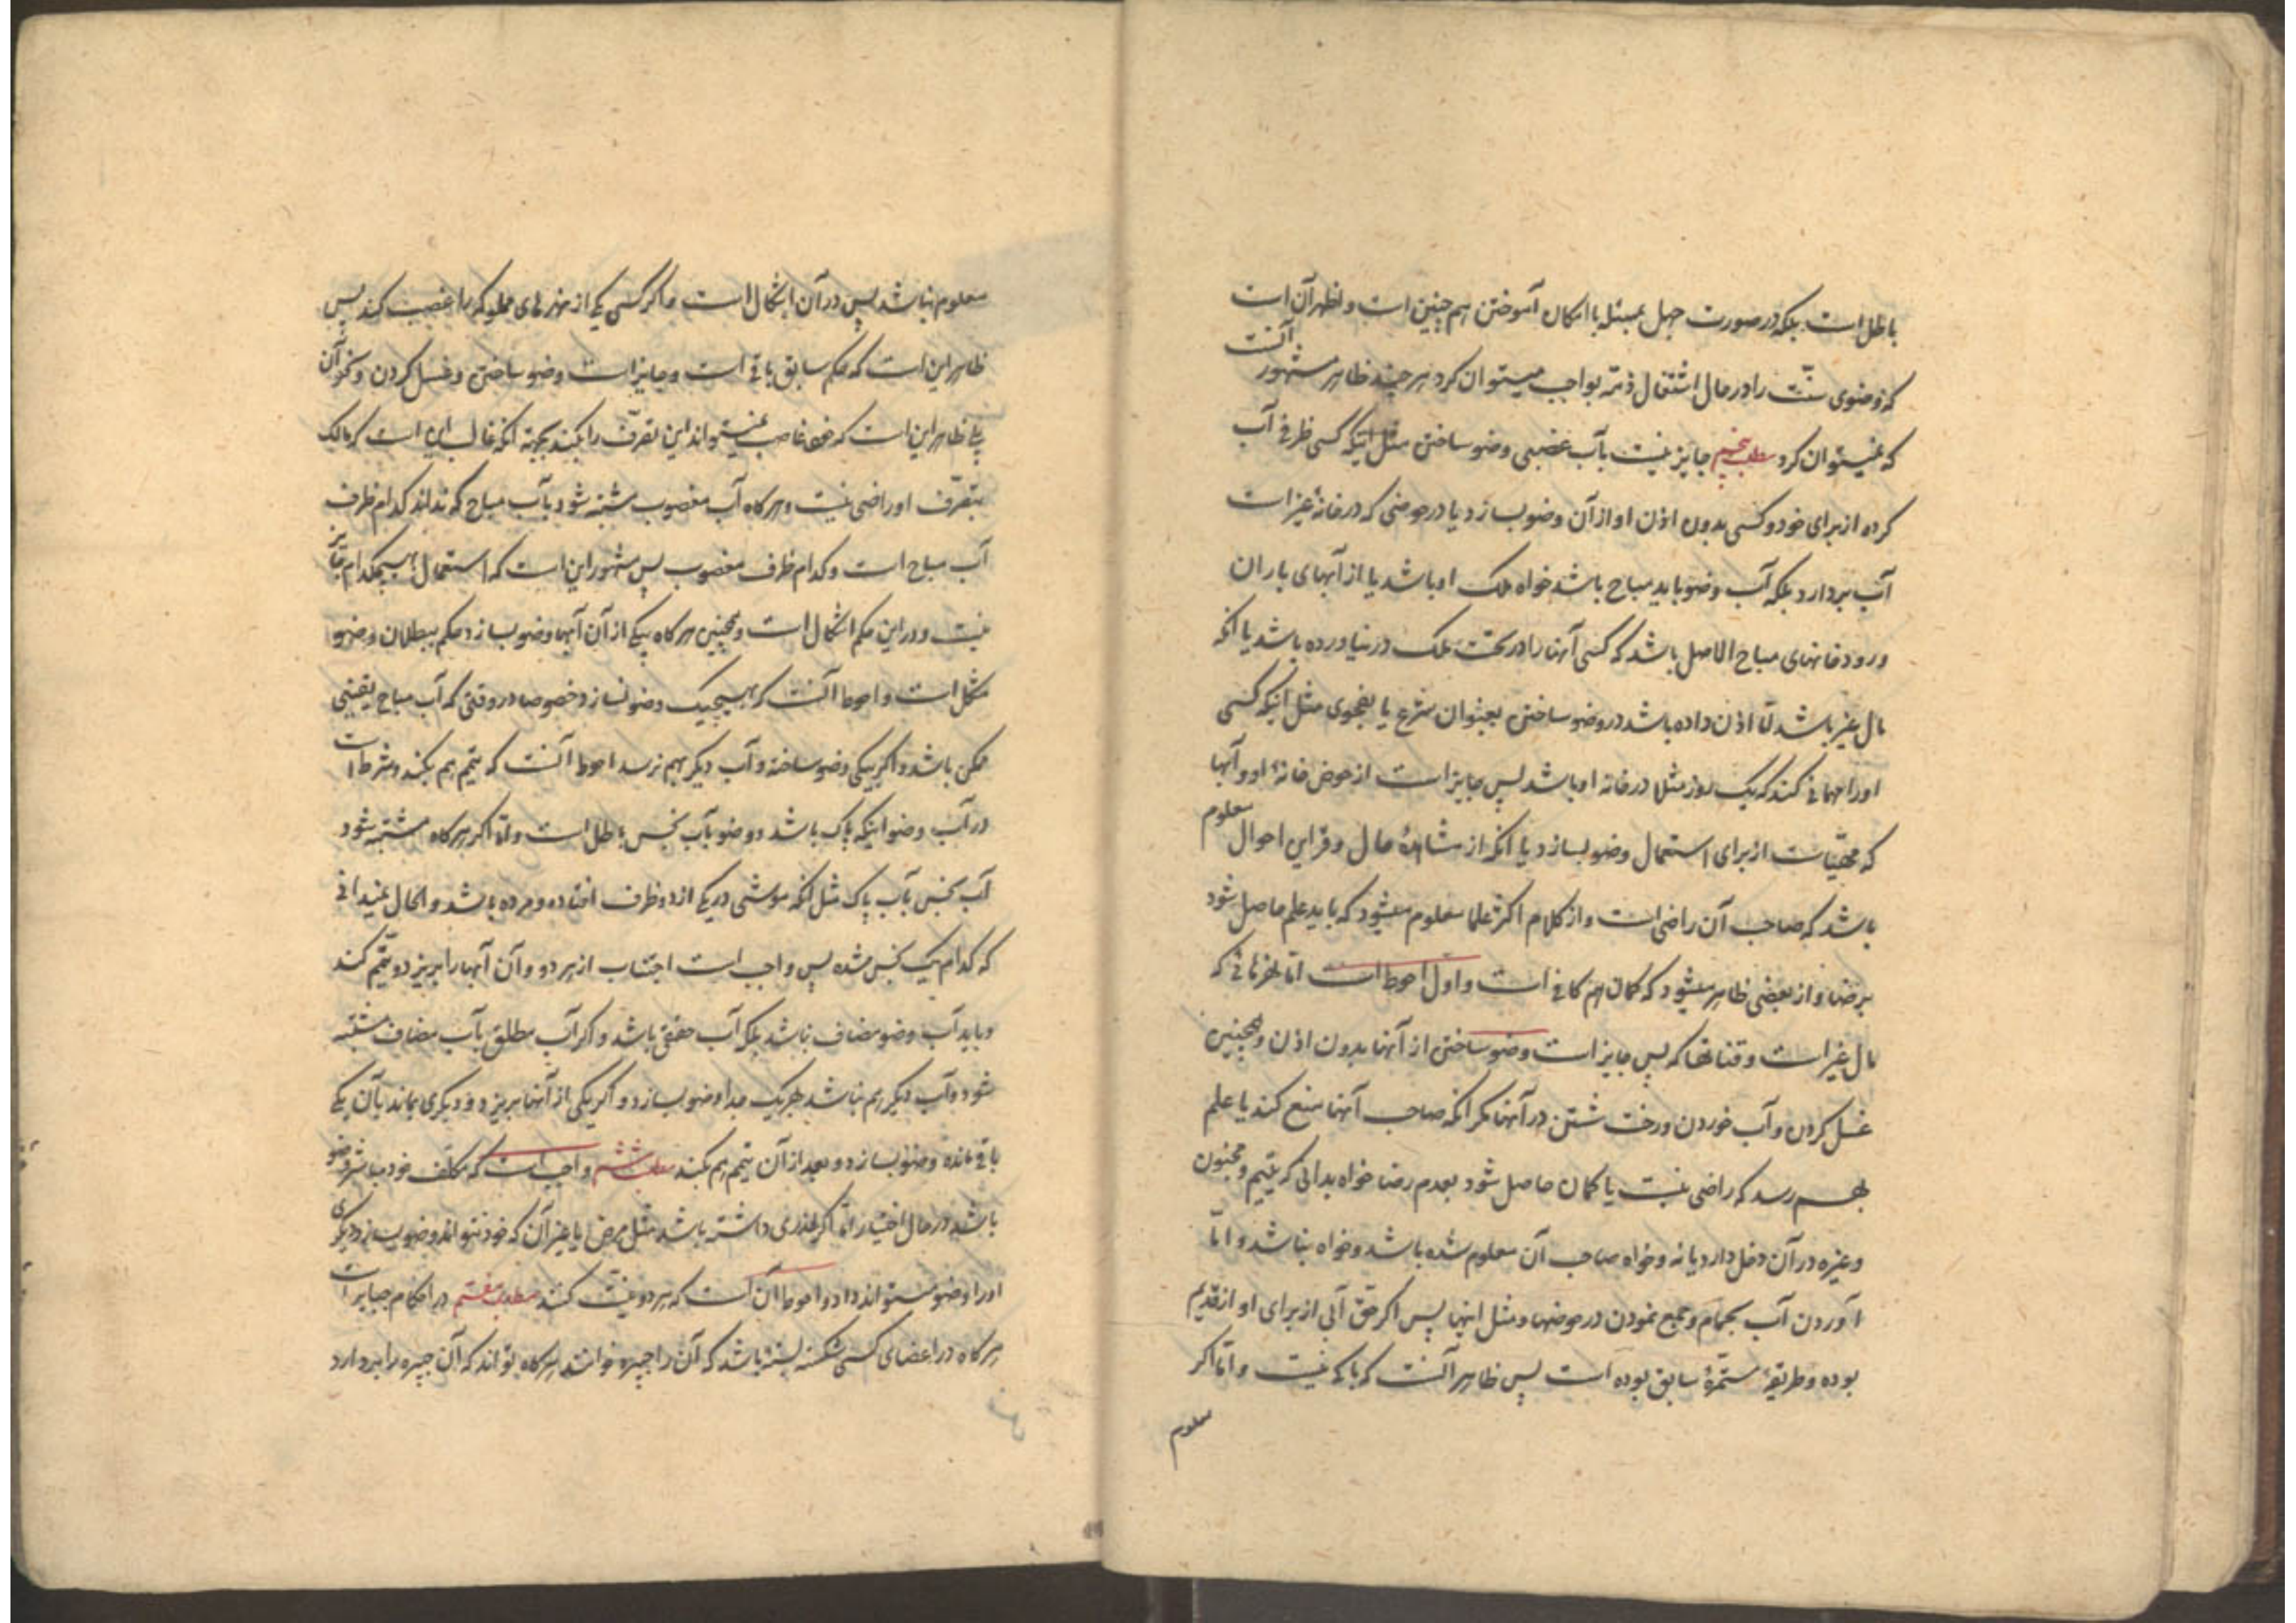 باطل است بلکه در صورت جهل بمسئله با امکان آموختن هم چنین است و اظهر آن است
که وضوی سنّت را در حال اشتغال ذمّه بواجب میتوان کرد هر چند ظاهر مشهور آنست
که نمیتوان کرد مطلب پنجم جایز نیست بآب غصبی وضو ساختن مثل اینکه کسی ظرفی آب
کرده از برای خود و کسی بدون اذن او از آن وضو بسازد یا در حوضی که در خانهٔ غیر است
آب بردارد بلکه آب وضو باید مباح باشد خواه ملک او باشد یا از آبهای باران
و رودخانهای مباح الاصل باشد که کسی آنها را در تحت ملک در نیاورده باشد یا آنکه
مال غیر باشد امّا اذن داده باشد در وضو ساختن بعنوان شرع یا بفحوی مثل اینکه کسی
او را مهمانی کند که یک روز مثلا در خانه او باشد پس جایز است از حوض خانهٔ او و آبها
که مهیّاست از برای استعمال وضو بسازد یا آنکه از مشاهدهٔ حال و قراین احوال معلوم
باشد که صاحب آن راضی است و از کلام اکثر علما معلوم میشود که باید علم حاصل شود
برضا و از بعضی ظاهر میشود که گمان هم کافی است و اول احوط است امّا نهرهائی که
مال غیر است و قناتها که پس جایز است وضو ساختن از آنها بدون اذن و همچنین
غسل کردن و آب خوردن و رخت شستن در آنها مگر آنکه صاحب آنها منع کند یا علم
بهم رسد که راضی نیست یا گمان حاصل شود بعدم رضا خواه بدانی که یتیم و مجنون
و غیره در آن دخل دارد یا نه و خواه صاحب آن معلوم شده باشد و خواه نباشد و امّا
آوردن آب بحمام و جمع نمودن در حوضها و مثل اینها پس اگر حقّ آبی از برای او از قدیم
بوده و طریقهٔ مستمرّهٔ سابق بوده است پس ظاهر آنست که باکی نیست و امّا اگر
معلوم
معلوم نباشد پس در آن اشکال است و اگر کسی یکی از نهرهای مملوکه را غصب کند پس
ظاهر این است که حکم سابق باقی است و جایز است وضو ساختن و غسل کردن و نحو آن
بلی ظاهر این است که خود غاصب نمیتواند این تصرّف را بکند بجهة آنکه غالب این است که مالک
بتصرّف او راضی نیست و هر گاه آب مغصوب مشتبه شود بآب مباح که نداند کدام ظرف
آب مباح است و کدام ظرف مغصوب پس مشهور این است که استعمال هیچکدام جایز
نیست و در این حکم اشکال است و همچنین هر گاه بیکی از آن آبها وضو بسازد حکم ببطلان وضو
مشکل است و احوط آنست که بهیچیک وضو نسازد خصوصا در وقتی که آب مباح یقینی
ممکن باشد و اگر بیکی وضو ساخته و آب دیگر بهم نرسد احوط آنست که تیمّم هم بکند و شرط است
در آب وضو اینکه پاک باشد و وضو بآب نجس باطل است و امّا اگر هر گاه مشتبه شود
آب نجس بآب پاک مثل آنکه موشی در یکی از دو ظرف افتاده و مرده باشد و الحال نمیدانی
که کدام یک نجس شده پس واجب است اجتناب از هر دو و آن آبها را بریزد و تیمّم کند
و باید آب وضو مضاف نباشد بلکه آب حقیقی باشد و اگر آب مطلق بآب مضاف مشتبه
شود و آب دیگر هم نباشد بهر یک جدا وضو بسازد و اگر یکی از آنها بریزد و دیگری بماند بآن یکی
باقی مانده وضو بسازد و بعد از آن تیمّم هم بکند مطلب ششم واجب است که مکلّف خود مباشر وضو
باشد در حال اختیار امّا اگر عذری داشته باشد مثل مرض یا غیر آن که خود نتواند وضو بسازد دیگری
او را وضو میتواند داد و احوط آن است که هر دو نیّت کنند مطلب هفتم در احکام جبایر است
هر گاه در اعضای کسی شکسته بسته باشد که آن را جبیره خوانند هر گاه تواند که آن جبیره را بردارد